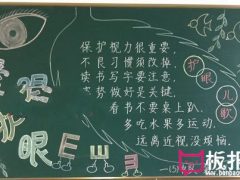 爱眼护眼
保护视力很重要,
不良习惯须改掉.
读书写字要注意.
姿势做好是关键.
看书不要桌上趴.
多吃水果多运动.
远离近视没烦恼.
护眼儿歌
EШ
板报网